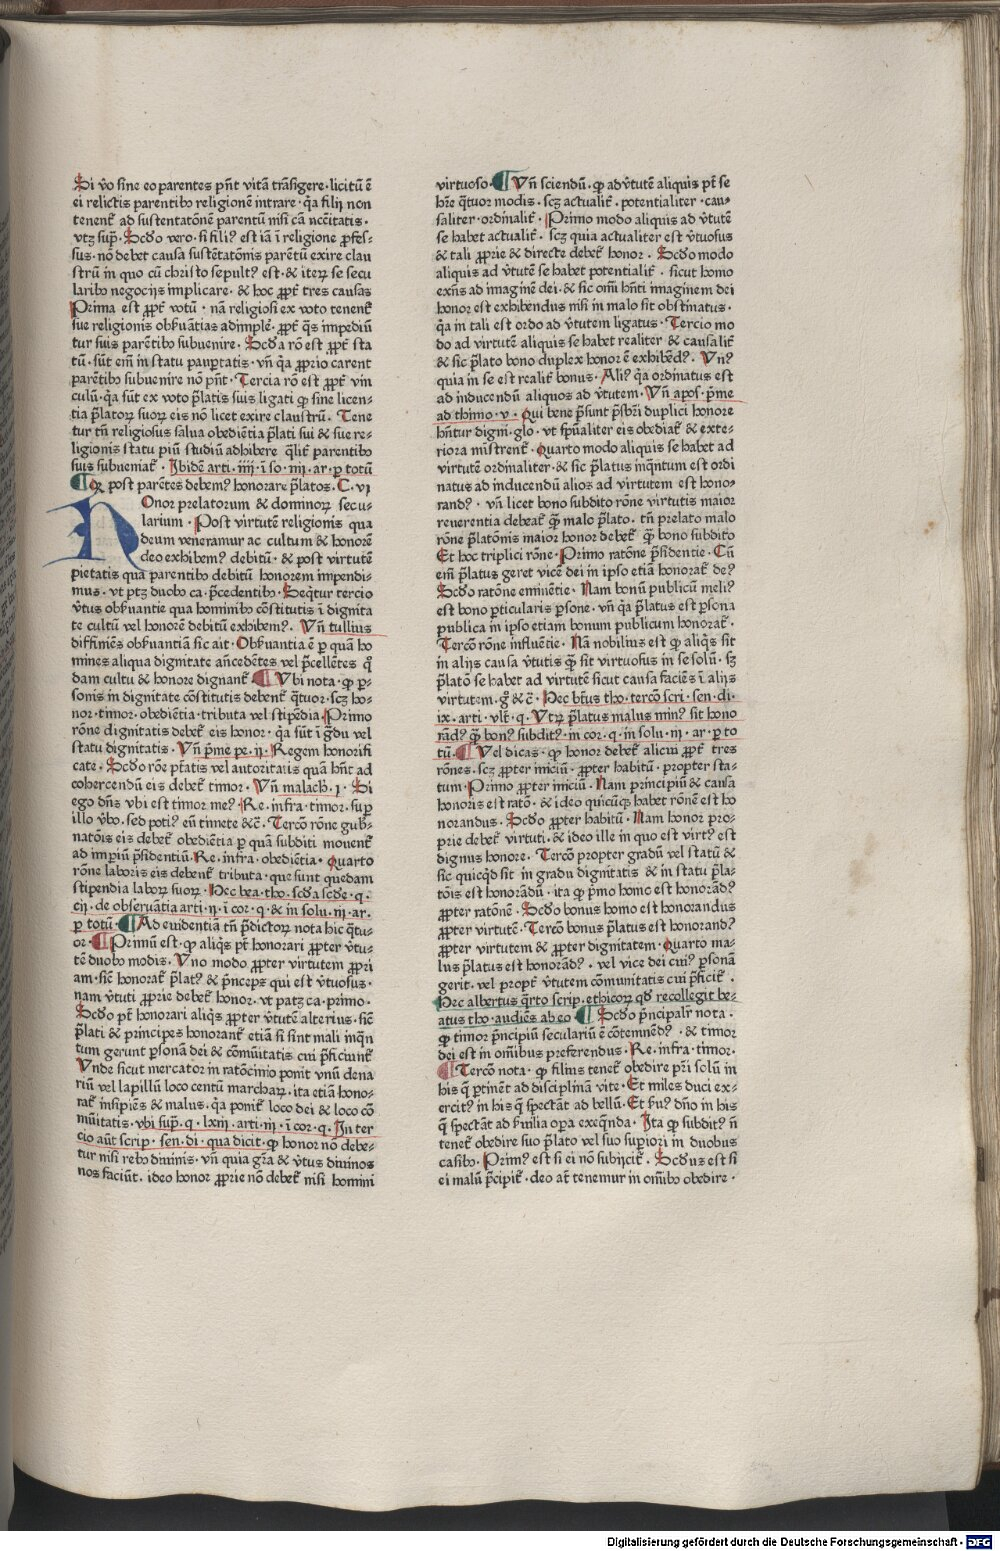 Si v̄o sine eo parentes pn̄t vitā trāsigere · licitū ē
ei relictis parentibo religionē intrare · q̄a filij non
tenent᷑ ad sustentatōnē parentū nisi cā nc̄citatis ·
vtꝫ sup̄ · Scd̄o vero · si fili⁹ est iā ī religione ꝓfes-
sus · nō debet causa sustētatōnis parētū exire clau
strū in quo cū christo sepult⁹ est · & iterꝝ se secu
laribo negocijs implicare · & hoc ꝓpt᷑ tres causas
Prima est ꝓpt᷑ votū · nā religiosi ex voto tenent᷑
sue religionis obẜuātias adimplē · ꝓpt᷑ q̄s impediū
tur suis parētibo subuenire · Scd̄a rō est ꝓpt᷑ sta
tū · sūt em̄ in statu paup̲tatis · vn̄ q̄a ꝓprio carent
parētibo subuenire nō pn̄t · Tercia rō est ꝓpt᷑ vin
culū · q̄a sūt ex voto p̄latis suis ligati ꝙ sine licen-
tia p̄latoꝝ suoꝝ eis nō licet exire claustrū · Tene
tur tn̄ religiosus salua obediētia p̄lati sui & sue re-
ligionis statu piū studiū adhibere q̄lit᷑ parentibo
suis subueniat᷑ · Ibidē arti · iiij · ī so · iiij · ar · ꝑ totū
¶ Qꝝ post parētes debem⁹ honorare p̄latos · C · vj
HOnor prelatorum & dominoꝝ secu-
larium · Post virtutē religionis qua
deum veneramur ac cultum & honorē
deo exhibem⁹ debitū · & post virtutē
pietatis qua parentibo debitū honorem impendi-
mus · vt ptꝫ duobo ca · p̄cedentibo · Seq̄tur tercio
v̄tus obẜuantie qua hominibo cōstitutis ī dignita
te cultū vel honorē debitū exhibem⁹ · Vn̄ tullius
diffiniēs obẜuantiā sic ait · Obẜuantia ē ꝑ quā ho
mines aliqua dignitate an̄cedētes vel p̄cellētes q̊
dam cultu & honore dignant᷑ · ¶ Vbi nota · ꝙ ꝑ-
sonis in dignitate cōstitutis debent᷑ q̄tuor · scꝫ ho-
nor · timor · obediētia · tributa vel stipēdia · Primo
rōne dignitatis debet᷑ eis honor · q̄a sūt ī gͣdu vel
statu dignitatis · Vn̄ p̄me pe · ij · Regem honorifi
cate · Scd̄o rōe ptātis vel autoritatis quā hn̄t ad
cohercendū eis debet᷑ timor · Vn̄ malach̄ · j · Si
ego dn̄s vbi est timor me⁹ · Re · infra · timor · suꝑ
illo v̄bo · sed poti⁹ eū timete &c̄ · Tercō rōne gub̄-
natōis eis debet᷑ obediētia ꝑ quā subditi mouent᷑
ad impiū p̄sidentiū · Re · infra · obediētia · Quarto
rōne laboris eis debent᷑ tributa · que sunt quedam
stipendia laboꝝ suoꝝ · Hec bea · tho · scd̄a scd̄e · q ·
cij · de obseruātia arti · ij · ī cor · q · & in solu · iij · ar ·
ꝑ totū · ¶ Ad euidentiā tn̄ p̄dictoꝝ nota hic q̄tu-
or · ¶ Primū est · ꝙ aliq̄s pt̄ honorari ꝓpter v̄tu-
tē duobo modis · Vno modo ꝓpter virtutem ꝓpri
am · sic̄ honorat᷑ p̄lat⁹ & p̄nceps qui est v̄tuosus ·
nam v̄tuti ꝓprie debet᷑ honor · vt patꝫ ca · primo ·
Scd̄o pt̄ honorari aliq̄s ꝓpter v̄tutē alterius · sic̄
p̄lati & principes honorant᷑ etiā si sint mali inq̄n
tum gerunt ꝑsonā dei & cōmūitatis cui p̄ficiunt᷑
Vnde sicut mercator in ratōcinio ponit vnū dena
riū vel lapillū loco centū marchaꝝ · ita etiā hono-
rat᷑ insipiēs & malus · q̄a ponit᷑ loco dei & loco cō
mūitatis · vbi sup̄ · q · lxiij · arti · iij · ī cor · q · In ter
cio aūt scrip · sen · di · qua dicit · ꝙ honor nō debe-
tur nisi rebo diuinis · vn̄ quia gr̄a & v̄tus diuinos
nos faciūt · ideo honor ꝓprie nō debet᷑ nisi homini
virtuoso · ¶ Vn̄ sciendū · ꝙ ad v̄tutē aliquis pt̄ se
hr̄e q̄tuor modis · scꝫ actualit᷑ · potentialiter · cau-
saliter · ordinalit᷑ · Primo modo aliquis ad v̄tutē
se habet actualit᷑ · scꝫ quia actualiter est v̄tuosus
& tali ꝓprie & directe debet᷑ honor · Scd̄o modo
aliquis ad v̄tutē se habet potentialit᷑ · sicut homo
exn̄s ad imaginē dei · & sic om̄i hn̄ti imaginem dei
honor est exhibendus nisi in malo sit obstinatus ·
q̄a in tali est ordo ad v̄tutem ligatus · Tercio mo
do ad virtutē aliquis se habet realiter & causalit᷑
& sic p̄lato bono duplex honor ē exhibēd⁹ · Vn⁹
quia in se est realit᷑ bonus · Ali⁹ q̄a ordinatus est
ad inducendū aliquos ad v̄tutem · Vn̄ apos · p̄me
ad thimo · v · Qui bene p̄sunt p̄sbr̄i duplici honore
hn̄tur digni · glo · vt sp̄ualiter eis obediat᷑ & exte-
riora mīstrent᷑ · Quarto modo aliquis se habet ad
virtutē ordinaliter · & sic p̄latus inq̄ntum est ordi
natus ad inducendū alios ad virtutem est hono-
rand⁹ · vn̄ licet bono subdito rōne virtutis maior
reuerentia debeat᷑ q̄ꝫ malo p̄lato · tn̄ prelato malo
rōne p̄latōnis maior honor debet᷑ q̄ꝫ bono subdito
Et hoc triplici rōne · Primo ratōne p̄sidentie · Cū
em̄ p̄latus geret vicē dei in ipso etiā honorat᷑ de⁹
Scd̄o ratōne eminētie · Nam bonū publicū meli⁹
est bono ꝑticularis ꝑsone · vn̄ q̄a p̄latus est ꝑsona
publica in ipso etiam bonum publicum honorat᷑ ·
Tercō rōne influētie · Nā nobilius est ꝙ aliq̄s sit
in alijs causa v̄tutis q̄ꝫ sit virtuosus in se solū · sꝫ
p̄latō se habet ad virtutē sicut causa faciēs ī alijs
virtutem · g̊ &c̄ · Hec bt̄us tho · tercō scri · sen · di ·
ix · arti · vlt᷑ · q · Vtꝝ p̄latus malus min⁹ sit hono
rād⁹ q̄ꝫ bon⁹ subdit⁹ · in cor · q · in solu · iij · ar · ꝑ to
tū · ¶ Vel dicas · ꝙ honor debet᷑ alicui ꝓpt᷑ tres
rōnes · scꝫ ꝓpter iniciū · ꝓpter habitū · propter sta-
tum · Primo ꝓpter iniciū · Nam principiū & causa
honoris est ratō · & ideo quicūqꝫ habet rōnē est ho
norandus · Scd̄o ꝓpter habitū · Nam honor pro-
prie debet᷑ virtuti · & ideo ille in quo est virt⁹ est
dignus honore · Tercō propter gradū vel statū &
sic quicq̄d sit in gradu dignitatis & in statu p̄la-
tōis est honorādū · ita ꝙ p̄mo homo est honorād⁹
ꝓpter ratōnē · Scd̄o bonus homo est honorandus
ꝓpter virtutē · Tercō bonus p̄latus est honorand⁹
ꝓpter virtutem & ꝓpter dignitatem · Quarto ma-
lus p̄latus est honorād⁹ · vel vice dei cui⁹ ꝑsonā
gerit · vel propt᷑ v̄tutem cōmunitatis cui p̄ficit᷑ ·
Hec albertus q̄rto scrip · ethicoꝝ qd̄ recollegit be-
atus tho · audiēs ab eo · ¶ Scd̄o p̄ncipalr̄ nota ·
ꝙ timor p̄ncipiū seculariū ē cōtemnēd⁹ · & timor
dei est in om̄ibus preferendus · Re · infra · timor ·
¶ Tercō nota · ꝙ filius tenet᷑ obedire pr̄i solū in
his q̄ ꝑtinēt ad disciplinā vite · Et miles duci ex-
ercit⁹ in his q̄ spectāt ad bellū · Et ẜu⁹ dn̄o in his
q̄ spectāt ad ẜuilia oꝑa exeq̄nda · Ita ꝙ subdit⁹ n̄
tenet᷑ obedire suo p̄lato vel suo suꝑiori in duobus
casibo · Prim⁹ est si ei nō subijcit᷑ · Scd̄us est si
ei malū p̄cipit᷑ · deo at̄ tenemur in om̄ibo obedire ·
Digitalisierung gefördert durch die Deutsche Forschungsgemeinschaft - DFG